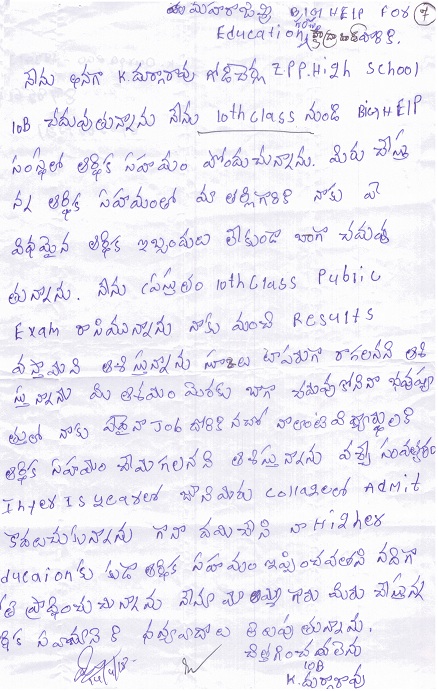 మహారాజశ్రీ BIGHELP FOR 7
Education గారికి.
నేను అనగా K.దుర్గారావు గోడిచర్ల ZPP.High School
10B చదువుతున్నాను నేను 10th class నుండి BIGHELP
సంస్థలో ఆర్థిక సహాయం పొందుచున్నాను. మీరు చేస్తు
న్న ఆర్థిక సహాయంలో మా తల్లిగారికి నాకు ఏ
విధమైన ఆర్థిక ఇబ్బందులు లేకుండా బాగా చదువు
తున్నాను. నేను ప్రస్తుతం 10th class Public
Exam రాసివున్నాను నాకు మంచి Results
వస్తాయని ఆశిస్తున్నాను స్కూలు టాపరుగా రాగలనని ఆశి
స్తున్నాను మీ ఆశయం మేరకు బాగా చదువుకోని నా భవిష్య
త్తులో నాకు ఏదైనా Job దొరికినచో నాలాంటి విద్యార్థులకి
ఆర్థిక సహాయం చేయగలనని ఆశిస్తున్నాను వచ్చే సంవత్సరం
Inter Is yearలో జూనియర్ collageలో Admit
కాదలచుకున్నాను గాన దయచేసి నా Higher
ducaionకు కూడా ఆర్థిక సహాయం ఇప్పించవలసినదిగా
ప్రార్థించుచున్నాను నేను మా అమ్మ గారు మీరు చేస్తున్న
ర్థిక సహాయానికి ధన్యవాదాలు తెలుపుతున్నాను.
చిత్తగించవలెను
10B
K.దుర్గారావు